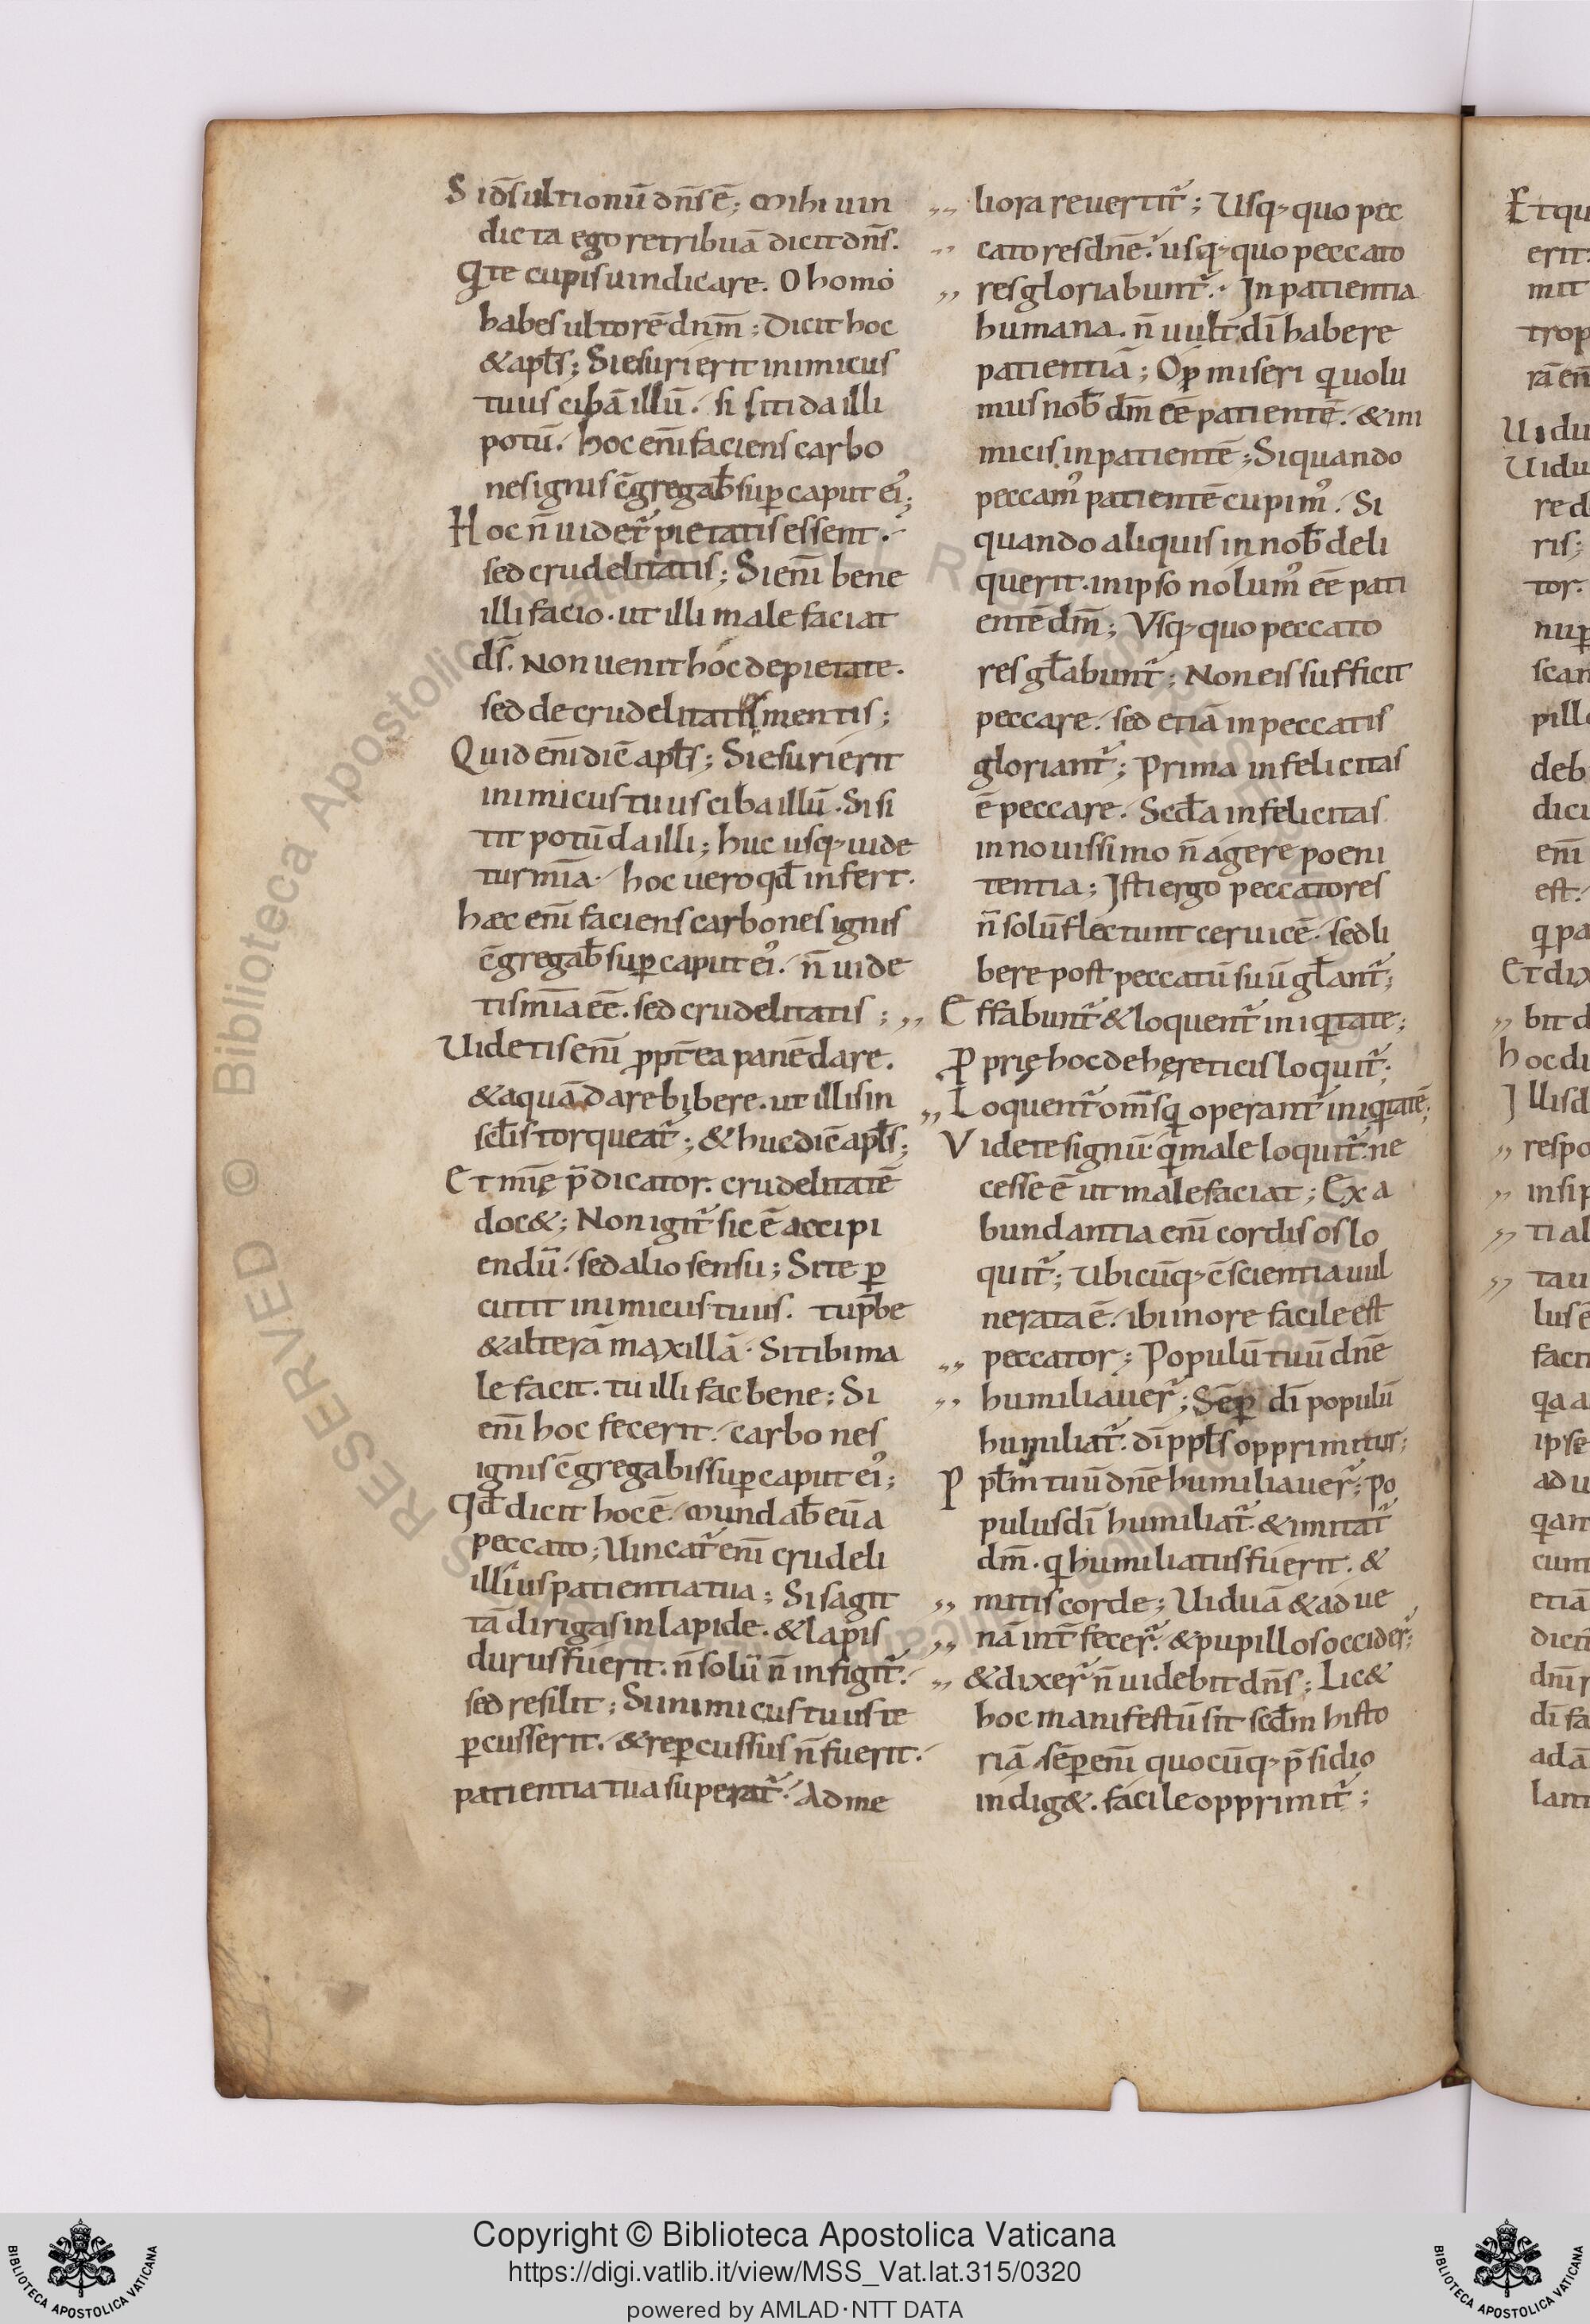 S id̄s ultionū dn̄s ē; Mihi uin
dicta ego retribuā dicit dn̄s.
Q te cupis uindicare. O homo
habes ultorē dnm̄; Dicit hoc
& apl̄s; Si esurierit inimicus
tuus cibā illū. si siti da illi
potū. hoc enī faciens carbo
nes ignis c̄gregab̄ sup caput ei᾽;
Hoc n̄ uidet᷑ pietatis essent.
sed crudelitatis; Si enī bene
illi facio. ut illi male faciat
ds̄. Non uenit hoc de pietate.
sed de crudelitatis mentis;
Quid enī dic̄ apl̄s; Si esurierit
inimicus tuus ciba illū. Si si
tit potū da illi; huc usq; uide
tur mīa. hoc uero qd̄ infert.
hæc enī faciens carbones ignis
c̄gregab̄ sup caput ei᾽. n̄ uide
tis mīa eē. sed crudelitatis;
Uidetis enī ppt̄ea panē dare.
& aquā dare bibere. ut illis in
scl̄is torqueat᷑; & huc dic̄ apl̄s;
Et mīę p̄dicator. crudelitatē
doc&; Non igit᷑ sic ē accipi
endū. sed alio sensu; Si te p
cutit inimicus tuus. tu p̄be
& alterā maxillā. Si tibi ma
le facit. tu illi fac bene; Si
enī hoc fecerit. carbones
ignis c̄gregabis sup caput ei᾽;
Qd̄ dicit hoc ē. Mundab̄ eū a
peccato; Uincat᷑ enī crudeli
illius patientia tua; Si sagit
tā dirigas in lapide. & lapis
durus fuerit. n̄ solū n̄ infigit᷑.
sed resilit; Si inimicus tuus te
pcusserit. & repcussus n̄ fuerit.
patientia tua superat᷑. Ad me
liora reuertit᷑; Usq; quo pec
catores dnē. usq; quo peccato
res gloriabunt᷑. In patientia
humana. n̄ uult dī habere
patientiā; O p miseri q uolu
mus nob̄ dm̄ eē patientē. & ini
micis inpatientē; Si quando
peccam᾽ patientē cupim᾽. Si
quando aliquis in nob̄ deli
querit. in ipso nolum᾽ eē pati
entē dm̄; Vsq; quo peccato
res gl̄abunt᷑; Non eis sufficit
peccare. sed etiā in peccatis
gloriant᷑; Prima infelicitas
ē peccare. Scd̄a infelicitas
in nouissimo n̄ agere poeni
tentia; Isti ergo peccatores
n̄ solū flectunt ceruicē. sed li
bere post peccatū suū gl̄ant᷑;
Effabunt᷑ & loquent᷑ iniqtate;
P prię hoc de hęreticis loquit᷑;
Loquent᷑ om̄s q operant᷑ iniqtatē;
Videte signū. q male loquit᷑. ne
cesse ē ut male faciat; Ex a
bundantia enī cordis os lo
quit᷑; Ubicūq; c̄scientia uul
nerata ē. ibi in ore facile est
peccator; Populū tuū dnē
humiliauer᷑; Sēp dī populū
humiliat᷑. dī ppl̄s opprimitur;
P pl̄m tuū dnē humiliauer᷑; po
pulus dī humiliat᷑. & imitat᷑
dm̄. q humiliatus fuerit. &
mitis corde; Uiduā & adue
nā int̄fecer᷑. & pupillos occider᷑;
& dixer᷑ n̄ uidebit dn̄s; Lic&
hoc manifestū sit scd̄m histo
riā. sēp enī quocūq; p̄sidio
indig&. facile opprimit᷑;
Et qu
erit.
mit
trop
rā en̄
Uidu
Uidu
re d
ris;
tor.
nup
scan
pill
deb
dici
enī
est.
q pa
Et dix
bit d
hoc di
Illis d
respo
insip
ti al
tau
lus ē
faci
qa a
ipse
ad u
qan
cun
etiā
dicit
dnī r
dī fa
adā
lant
Copyright © Biblioteca Apostolica Vaticana
https://digi.vatlib.it/view/MSS_Vat.lat.315/0320
powered by AMLAD·NTT DATA
BIBLIOTECA APOSTOLICA VATICANA
BIBLIOTECA APOSTOLICA VATICANA